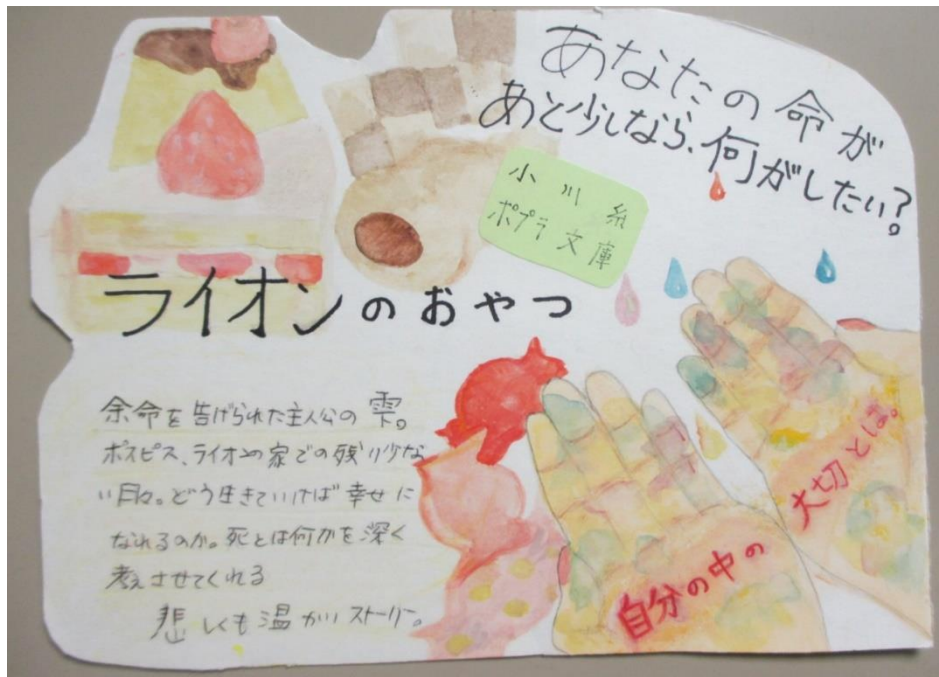 あなたの命が
あと少しなら、何がしたい?
小川糸
ポプラ文庫
ライオンのおやつ
余命を告げられた主人公の雫。
ホスピス、ライオンの家での残り少な
い月々。どう生きていけば幸せに
なれるのか。死とは何かを深く
考えさせてくれる
悲しくも温かいストーリー。
自分の中の
大切とは。